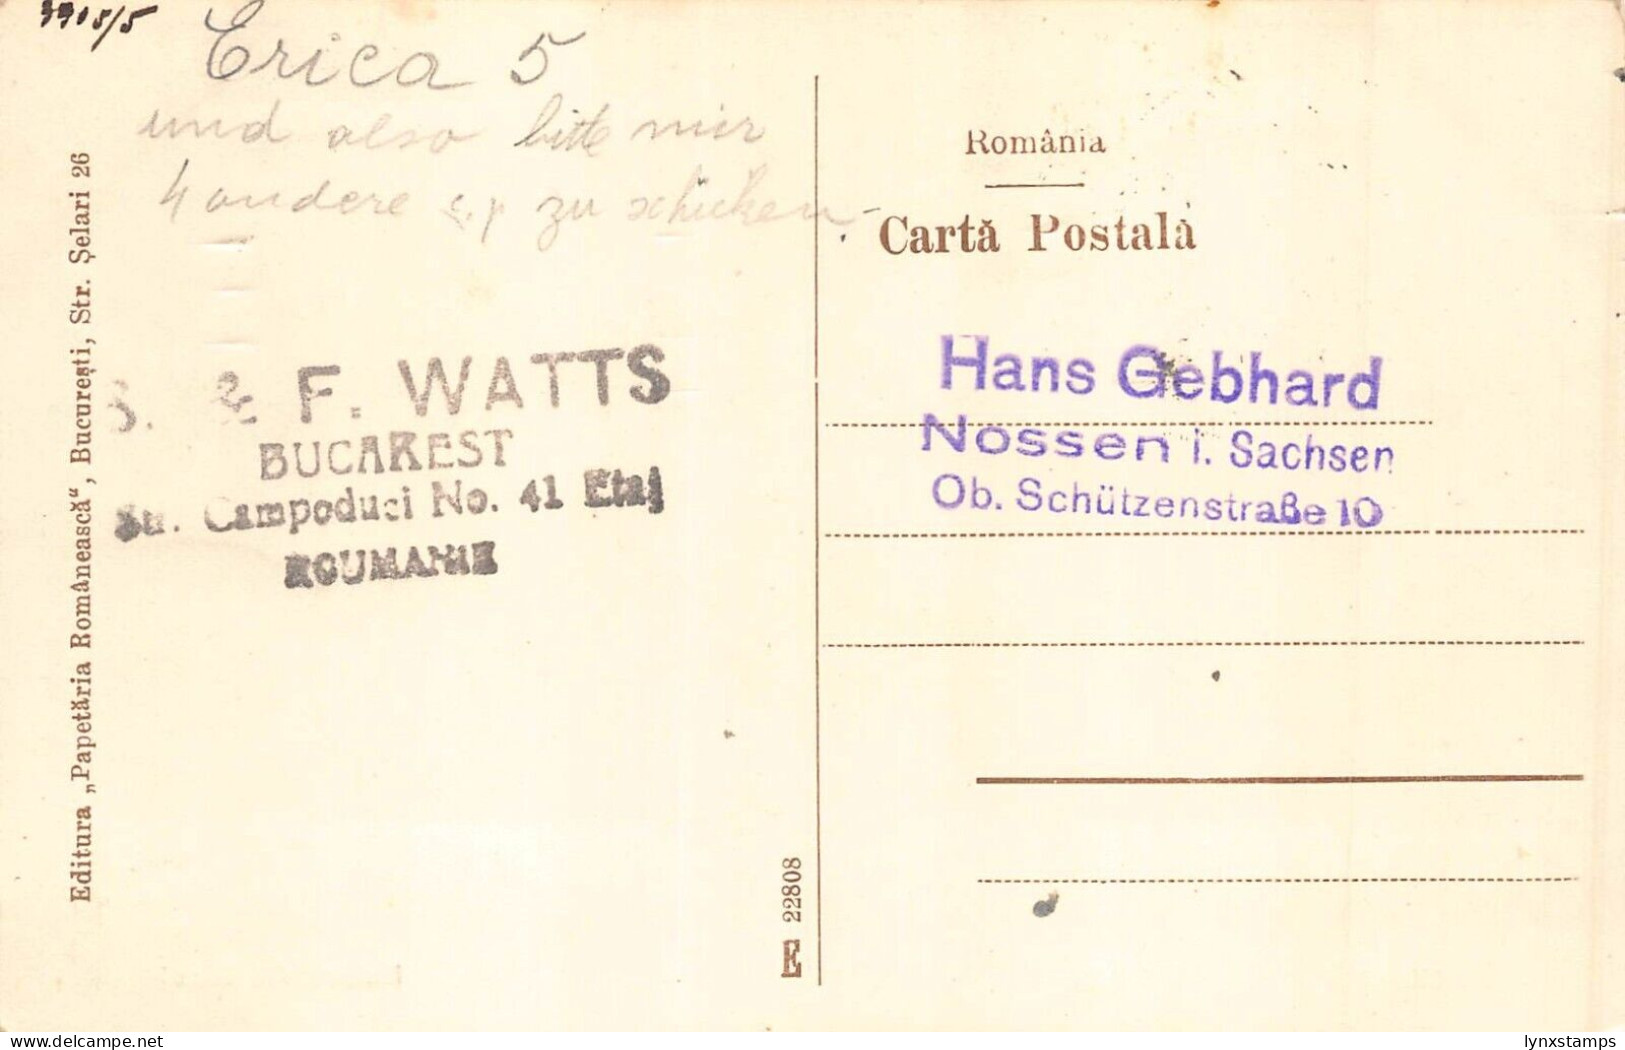 3905/5
Erica 5
und also bitte mir
4 andere zu schicken
Editura „Papetăria Românească“, București, Str. Șelari 26
& F. WATTS
BUCAREST
Str. Campoduci No. 41 Etaj
ROUMANIE
România
Cartă Postală
Hans Gebhard
Nossen i. Sachsen
Ob. Schützenstraße 10
E 22808
delcampe.net
lynxstamps